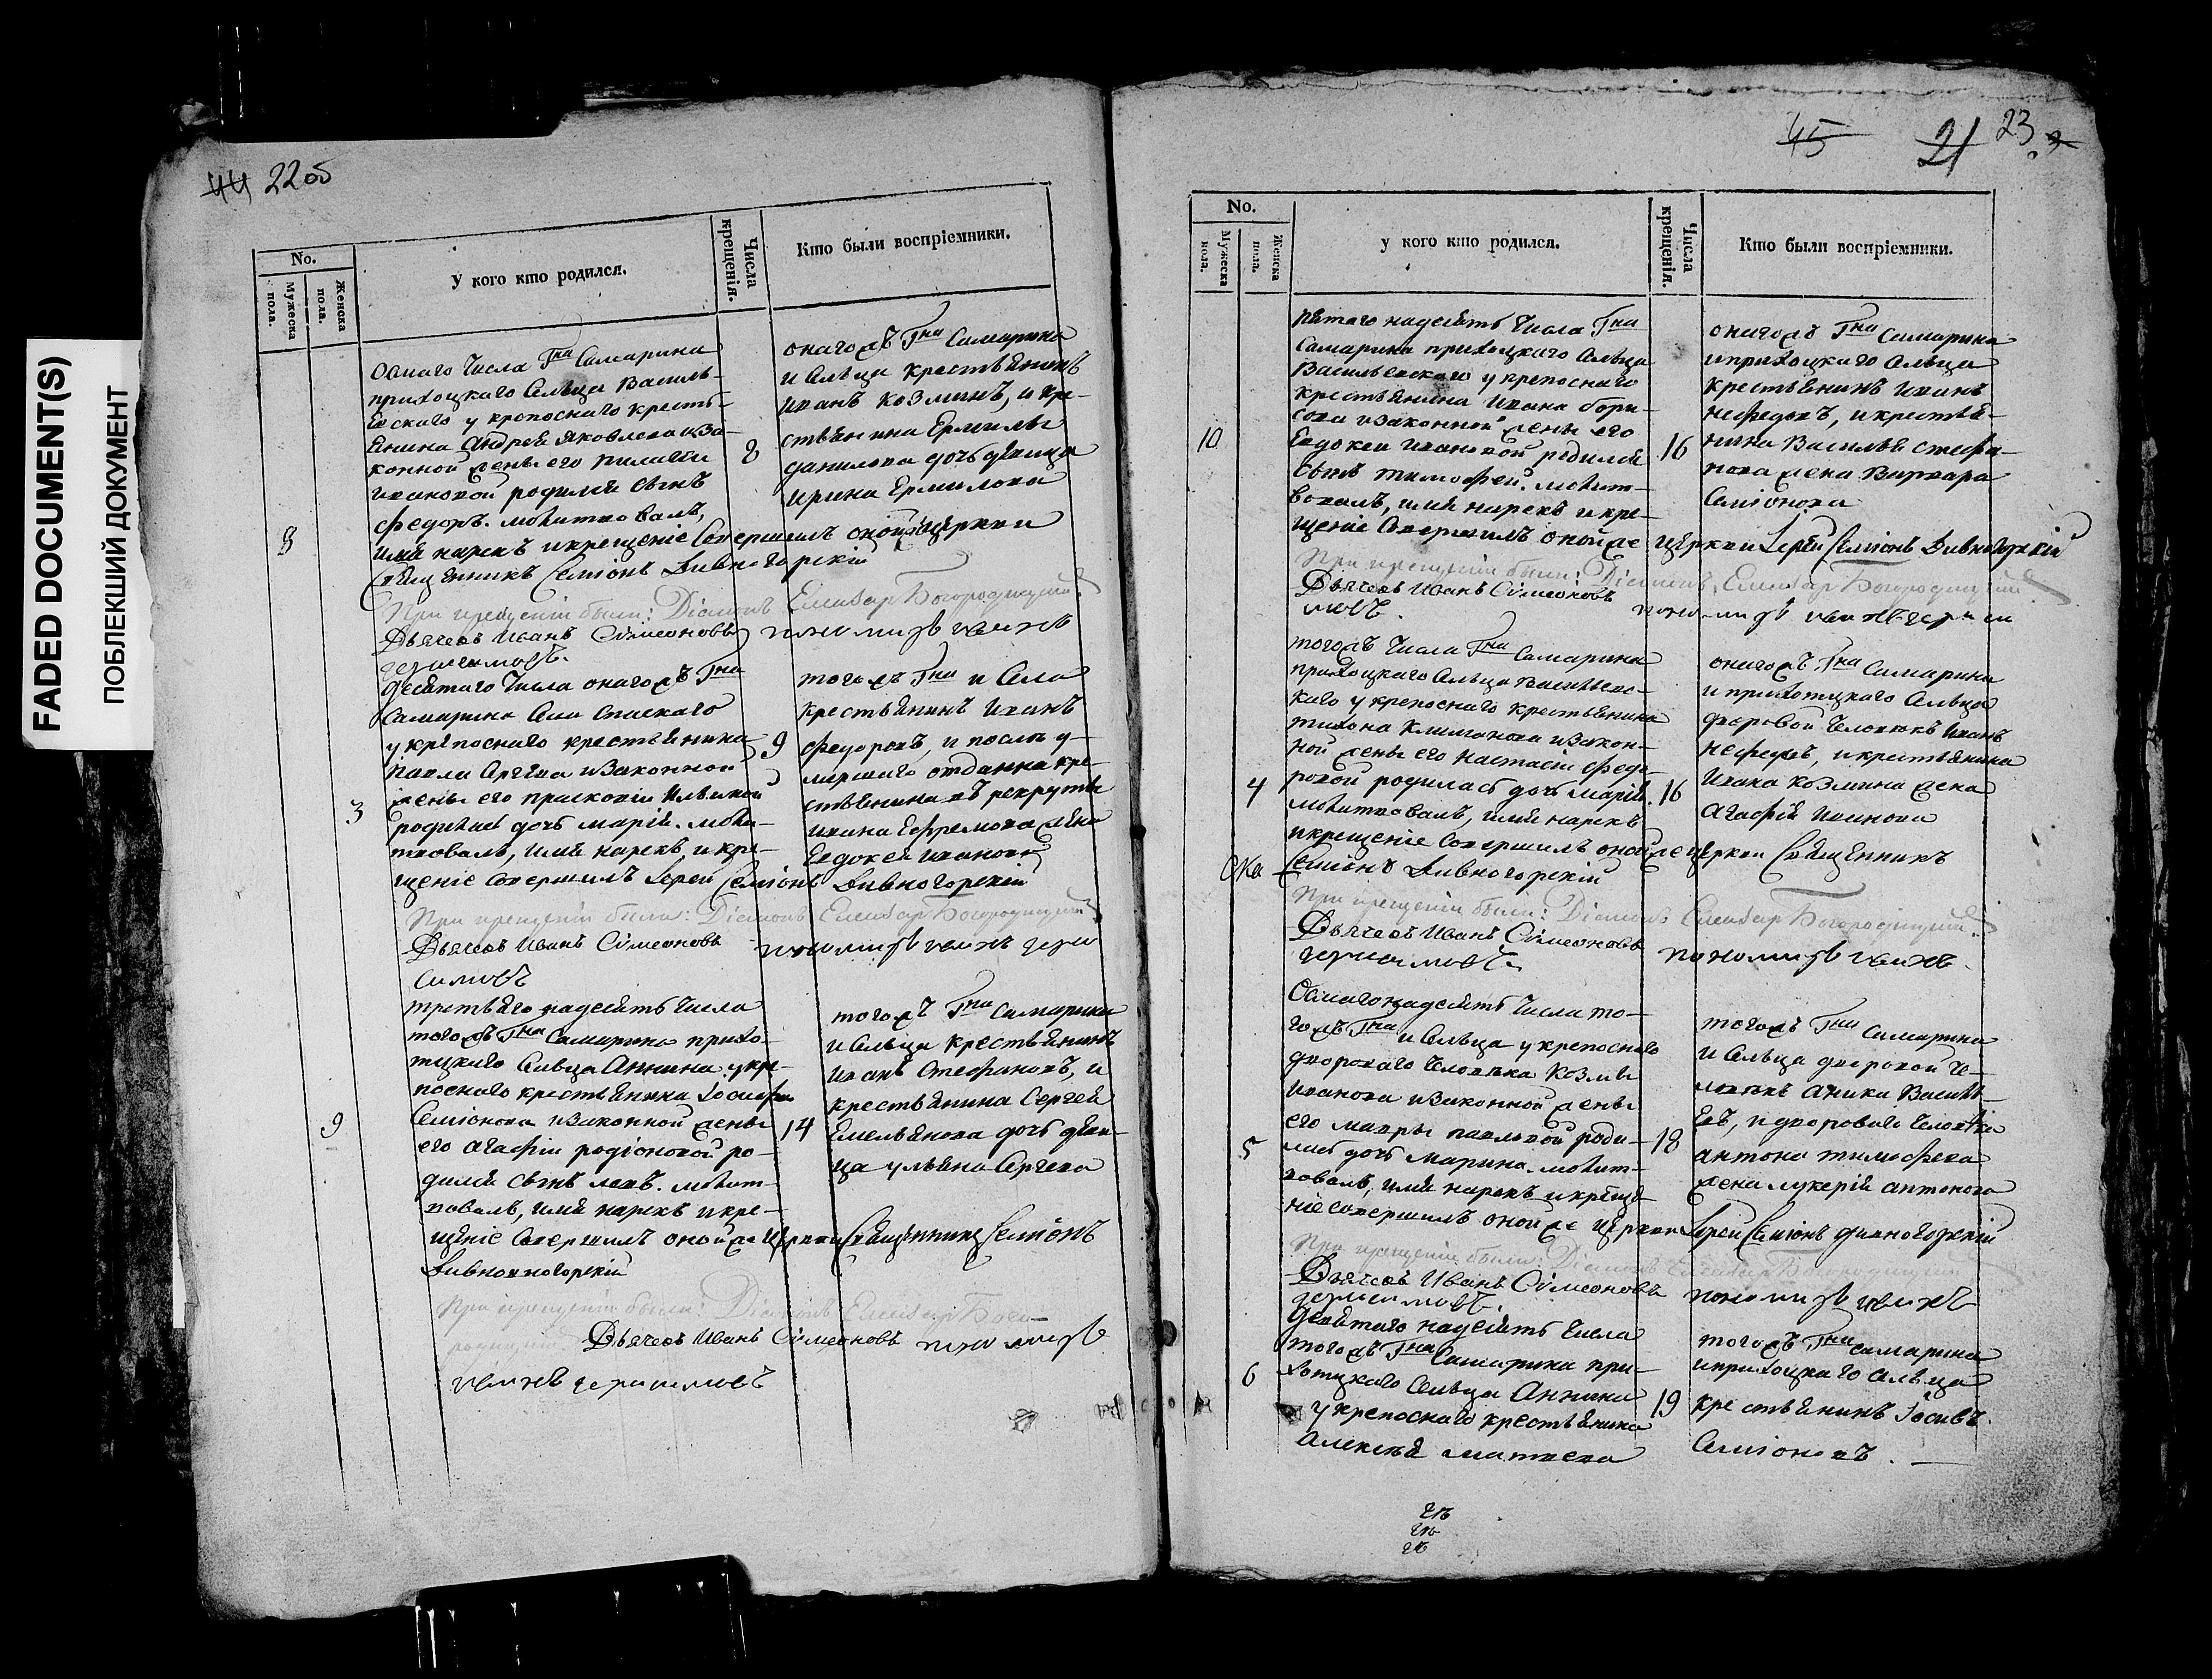 FADED DOCUMENT(S)
ПОБЛЕКШИЙ ДОКУМЕНТ
44 22об
No.
Мужеска пола.
Женска пола.
У кого кто родился.
Числа крещенія.
Кто были воспріемники.
8
осмаго числа Гна Самарина
приходцкаго сельца Василь-
евскаго у крепоснаго кресть-
янина Андрея Яковлева и за-
конной жены его Пилагеи
Ивановой родился сынъ
Федоръ. молитвовалъ,
имя нарекъ и крещеніе совершилъ оной церкви
священникъ Семіонъ Дивногорскій
8
онагожъ Гна Самарина
и сельца крестьянинъ
Иванъ Козминъ, и кре-
стьянина Ермилы
Данилова дочь девица
Ирина Ермилова
При крещеніи были: Діаконъ Елеазар Богородицкий
Дьячекъ Иванъ Сумеоновъ пономарь Иванъ
Герасимовъ.
3
десятаго числа онагожъ Гна
Самарина села Спаскаго
у крѣпоснаго крестьянина
Павла Сргева и законной
жены его Прасковіи Ильиной
родилась дочь Марія. моли-
твовалъ, имя нарекъ, и кре-
щеніе совершилъ Іерей Семіонъ Дивногорскій
9
тогожъ Гна и села
крестьянинъ Иванъ
Федоровъ, и
отданна кре-
стьянина въ рекруты
Ивана Ефремова жена
Евдокея Иванова
При крещеніи были: Діаконъ Елеазар Богородицкий
Дьячекъ Иванъ Сумеоновъ пономарь Иванъ Гера
симовъ
9
третьяго надесять числа
тогожъ Гна Самарина прихо-
тцкаго сельца Аннина у кре-
поснаго крестьянина Іосифа
Семіонова и законной жены
его Агафіи Родіоновой ро-
дился сынъ Левъ. молит-
вовалъ, имя нарекъ и кре-
щеніе совершилъ оной же церкви священникъ Семіонъ
Дивногорскій
14
тогожъ Гна Самарина
и сельца крестьянинъ
Иванъ Стефановъ, и
крестьянина Сергея
Емельянова дочь деви-
ца Ульяна Сргева
При крещеніи были: Діаконъ Елеазар Бого-
родицкий Дьячекъ Иванъ Сумеоновъ пономарь
Иванъ Герасимовъ
45 21 23
No.
Мужеска пола.
Женска пола.
у кого кто родился.
Числа крещенія.
Кто были воспріемники.
10
пятаго надесять числа Гна
Самарина приходцкаго сельца
Васильевскаго у крепоснаго
крестьянина Ивана Бори-
сова и законной жены его
Евдокеи Ивановой родился
сынъ Тимофей. молит-
вовалъ, имя нарекъ и кре-
щеніе совершилъ оной же церкви Іерей Семіонъ Дивногорскій
16
онагожъ Гна Самарина
и приходцкаго сельца
крестьянинъ Иванъ
Нефедовъ, и крестья-
нина Василья Стефа-
нова жена Варвара
Семіонова
При крещеніи были: Діаконъ Елеазар Богородицкий
Дьячекъ Иванъ Сумеоновъ пономарь Иванъ Гераси
мовъ.
4
тогожъ числа Гна Самарина
приходцкаго сельца Васильевс-
каго у крепоснаго крестьянина
Тихона Климанова и закон-
ной жены его Настасіи Федо-
ровой родилась дочь Марія.
молитвовалъ, имя нарекъ
и крещеніе совершилъ оной же церкви священникъ
Семіонъ Дивногорскій
16
онагожъ Гна Самарина
и прихотцкаго сельца
дворовой человекъ Иванъ
Нефедовъ, и крестьянина
Ивана Козмина жена
Агафія Иванова
При крещеніи были: Діаконъ Елеазар Богородицкий
Дьячекъ Иванъ Сумеоновъ пономарь Иванъ
Герасимовъ.
5
Осмагонадесять числа то-
гожъ Гна и сельца у крепоснаго
двороваго человѣка Козмы
Иванова и законной жены
его Мавры Павловой роди-
лась дочь Марина. молит-
вовалъ, имя нарекъ и креще-
ніе совершилъ оной же церкви Іерей Семіонъ Дивногорскій
18
тогожъ Гна Самарина
и сельца дворовой че-
ловекъ Аника Василь-
евъ, и двороваго человѣка
Антона Тимофева
жена Лукерія Антонова
При крещеніи были: Діаконъ Елеазар Богородицкий
Дьячекъ Иванъ Сумеоновъ пономарь Иванъ
Герасимовъ.
6
девятаго надесять числа
тогожъ Гна Самарина при-
хотцкаго сельца Аннина
у крепоснаго крестьянина
Алексѣя Матвева
19
тогожъ Гна Самарина
и приходцкаго сельца
крестьянинъ Іосивъ
Семіоновъ.